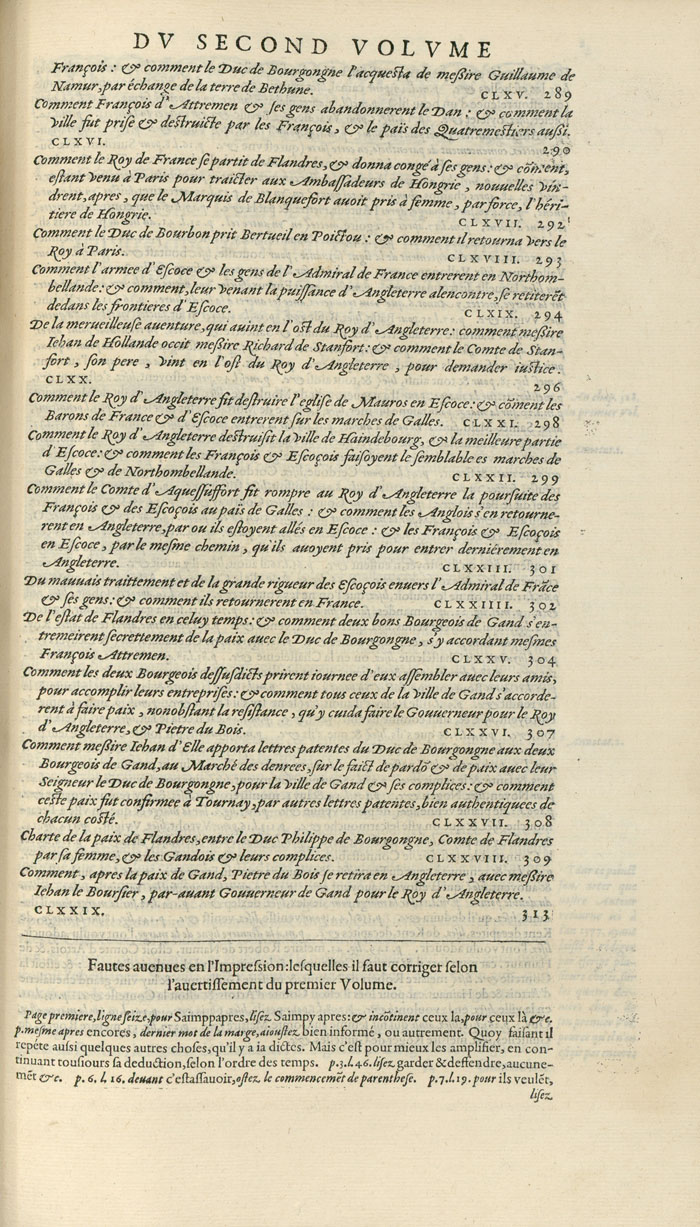 DV SECOND VOLVME
François : & comment le Duc de Bourgongne l'acquesta de meßire Guillaume de
Namur, par échange de la terre de Bethune. CLXV. 289
Comment François d'Attremen & ses gens abandonnerent le Dan : & comment la
ville fut prise & destruicte par les François, & le païs des Quatremestiers aussi.
CLXVI. 290
Comment le Roy de France se partit de Flandres, & donna congé à ses gens: & cõment,
estant venu à Paris pour traicter aux Ambassadeurs de Hongrie, nouvelles vin-
drent, apres, que le Marquis de Blanquefort auoit pris à femme, par force, l'héri-
tiere de Hongrie. CLXVII. 292
Comment le Duc de Bourbon prit Bertueil en Poictou : & comment il retourna vers le
Roy à Paris. CLXVIII. 293
Comment l'armee d'Escoce & les gens de l'Admiral de France entrerent en Northom-
bellande: & comment, leur venant la puissance d'Angleterre alencontre, se retirerẽt
dedans les frontieres d'Escoce. CLXIX. 294
De la merueilleuse auenture, qui auint en l'ost du Roy d'Angleterre: comment meßire
Iehan de Hollande occit meßire Richard de Stanfort: & comment le Comte de Stan-
fort, son pere, vint en l'ost du Roy d'Angleterre, pour demander iustice.
CLXX. 296
Comment le Roy d'Angleterre fit destruire l'eglise de Mauros en Escoce: & cõment les
Barons de France & d'Escoce entrerent sur les marches de Galles. CLXXI. 298
Comment le Roy d'Angleterre destruisit la ville de Haindebourg, & la meilleure partie
d'Escoce: & comment les François & Escoçois faisoyent le semblable es marches de
Galles & de Northombellande. CLXXII. 299
Comment le Comte d'Aquessuffort fit rompre au Roy d'Angleterre la poursuite des
François & des Escoçois au païs de Galles : & comment les Anglois s'en retourne-
rent en Angleterre, par ou ils estoyent allés en Escoce : & les François & Escoçois
en Escoce, par le mesme chemin, qu'ils auoyent pris pour entrer derniérement en
Angleterre. CLXXIII. 301
Du mauuais traittement et de la grande rigueur des Escoçois enuers l'Admiral de Frãce
& ses gens: & comment ils retournerent en France. CLXXIIII. 302
De l'estat de Flandres en celuy temps: & comment deux bons Bourgeois de Gand s'en-
tremeirent secrettement de la paix auec le Duc de Bourgongne, s'y accordant mesmes
François Attremen. CLXXV. 304
Comment les deux Bourgeois dessusdicts prirent iournee d'eux assembler auec leurs amis,
pour accomplir leurs entreprises: & comment tous ceux de la ville de Gand s'accorde-
rent à faire paix, nonobstant la resistance, qu'y cuida faire le Gouuerneur pour le Roy
d'Angleterre, & Pietre du Bois. CLXXVI. 307
Comment meßire Iehan d'Elle apporta lettres patentes du Duc de Bourgongne aux deux
Bourgeois de Gand, au Marché des denrees, sur le faict de pardõ & de paix auec leur
Seigneur le Duc de Bourgongne, pour la ville de Gand & ses complices: & comment
ceste paix fut confirmee à Tournay, par autres lettres patentes, bien authentiques de
chacun costé. CLXXVII. 308
Charte de la paix de Flandres, entre le Duc Philippe de Bourgongne, Comte de Flandres
par sa femme, & les Gandois & leurs complices. CLXXVIII. 309
Comment, apres la paix de Gand, Pietre du Bois se retira en Angleterre, auec meßire
Iehan le Boursier, par-auant Gouuerneur de Gand pour le Roy d'Angleterre.
CLXXIX. 313
Fautes auenues en l'Impression: lesquelles il faut corriger selon
l'auertissement du premier Volume.
Page premiere, ligne seize, pour Saimppapres, lisez Saimpy apres: & incõtinent ceux la, pour ceux là &c.
p. mesme apres encores, dernier mot de la marge, aioustez bien informé, ou autrement. Quoy faisant il
repete aussi quelques autres choses, qu'il y a ia dictes. Mais c'est pour mieux les amplifier, en con-
tinuant tousiours sa deduction, selon l'ordre des temps. p. 3. l. 46. lisez garder & deffendre, aucune-
mẽt &c. p. 6. l. 16. deuant c'estassauoir, ostez le commencemẽt de parenthese. p. 7. l. 19. pour ils veulẽt,
lisez